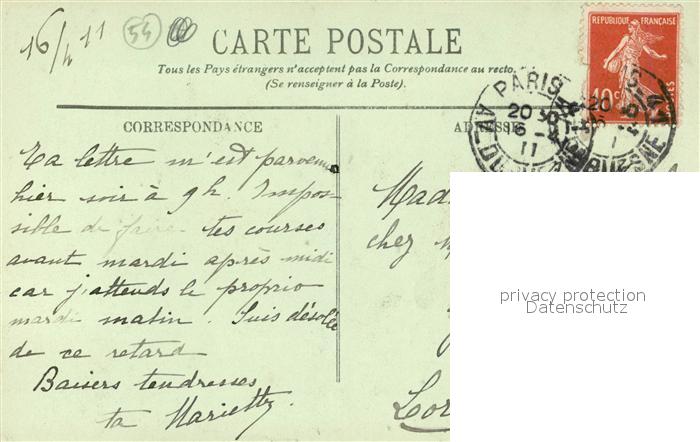 16/4 11
54
CARTE POSTALE
Tous les Pays étrangers n'acceptent pas la Correspondance au recto.
(Se renseigner à la Poste).
RÉPUBLIQUE FRANÇAISE
10c
POSTES
PARIS
20 30
6-4
11
AV-DUQUESNE
CORRESPONDANCE
ADRESSE
Ta lettre m'est parvenue
hier soir à 9h. Impos-
sible de faire tes courses
avant mardi après midi
car j'attends le proprio
mardi matin. Suis désolée
de ce retard
Baisers tendresses
ta Marietty.
Mad
chez
Lor
privacy protection
Datenschutz